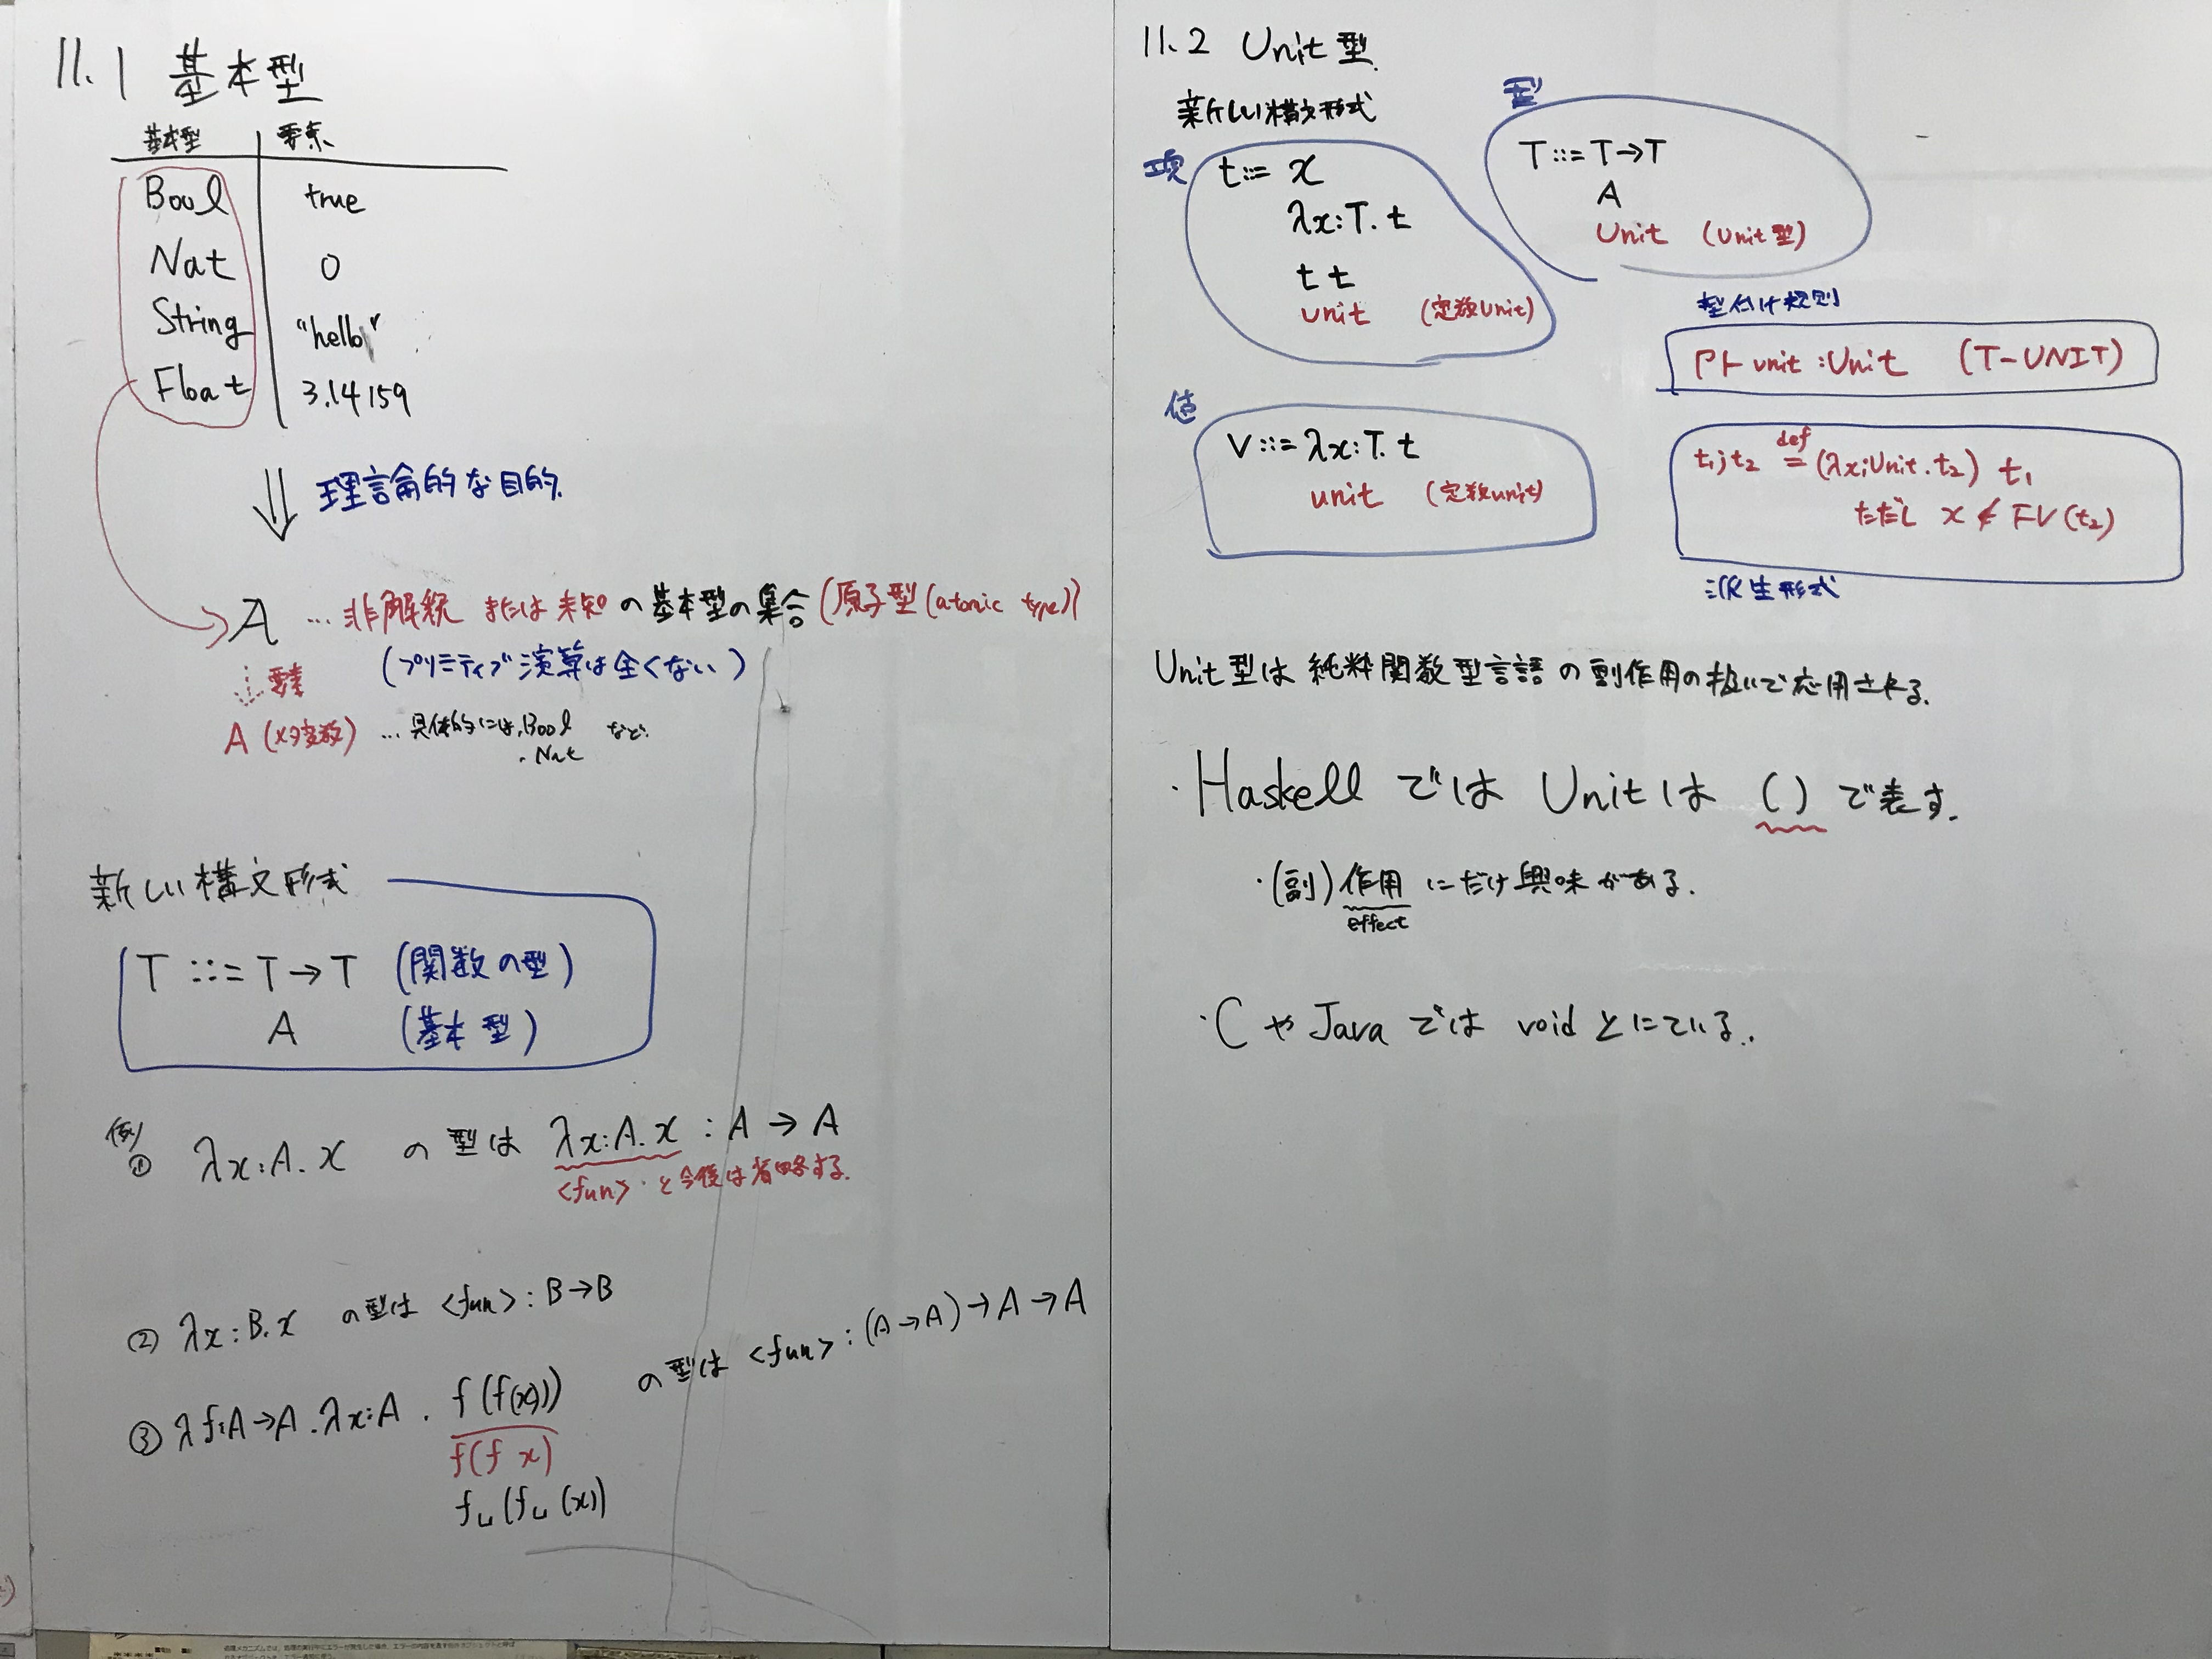 11.1 基本型
基本型 要素
Bool true
Nat 0
String "hello"
Float 3.14159
理論的な目的.
A … 非解釈 または 未知 の 基本型の集合 (原子型(atomic type))
(プリミティブ演算は全くない)
要素
A (メタ変数) … 具体的には, Bool など.
. Nat
新しい構文形式
T ::= T→T (関数の型)
A (基本型)
例
① λx:A. x の型は λx:A. x : A → A
<fun> と今後は省略する.
② λx:B. x の型は <fun> : B→B
③ λf:A→A. λx:A. f(f(x)) の型は <fun> : (A→A)→A→A
f(f x)
f␣(f␣(x))
11.2 Unit型.
新しい構文形式
項
t ::= x
λx:T. t
t t
unit (定数unit)
型
T ::= T→T
A
Unit (Unit型)
型付け規則
Γ⊢ unit : Unit (T-UNIT)
値
V ::= λx:T. t
unit (定数unit)
t₁;t₂ def= (λx:Unit.t₂) t₁
ただし x ∉ FV(t₂)
派生形式
Unit型は純粋関数型言語の副作用の扱いで応用される.
・Haskell では Unitは () で表す.
・(副)作用 にだけ興味がある.
effect
・C や Java では void とにている.